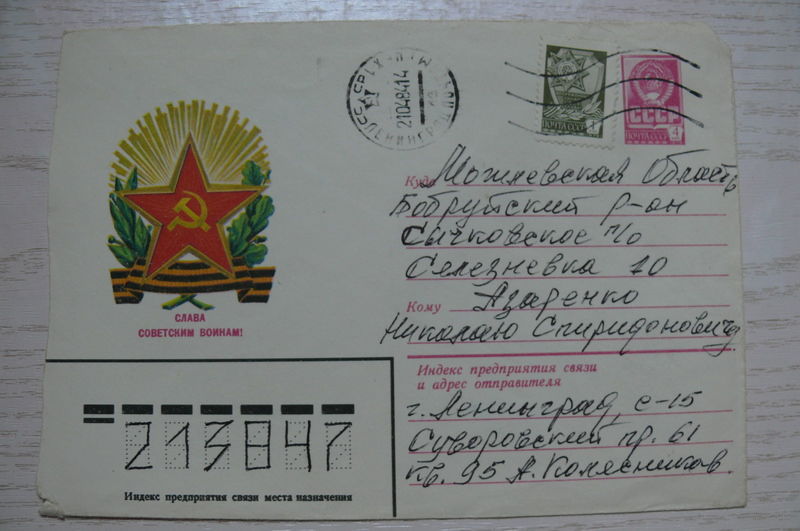 СССР
ПОЧТА СССР
4
ПОЧТА СССР
1
21048414
ЛЕНИНГРАД
СЛАВА
СОВЕТСКИМ ВОИНАМ!
Куда Могилевская Область
Бобруйский р-он
Сычковское п/о
Селезневка 10
Кому Азаренко
Николаю Спиридоновичу
Индекс предприятия связи
и адрес отправителя
г. Ленинград, с-15
Суворовский пр. 61
кв. 95 А. Колесников.
213847
Индекс предприятия связи места назначения